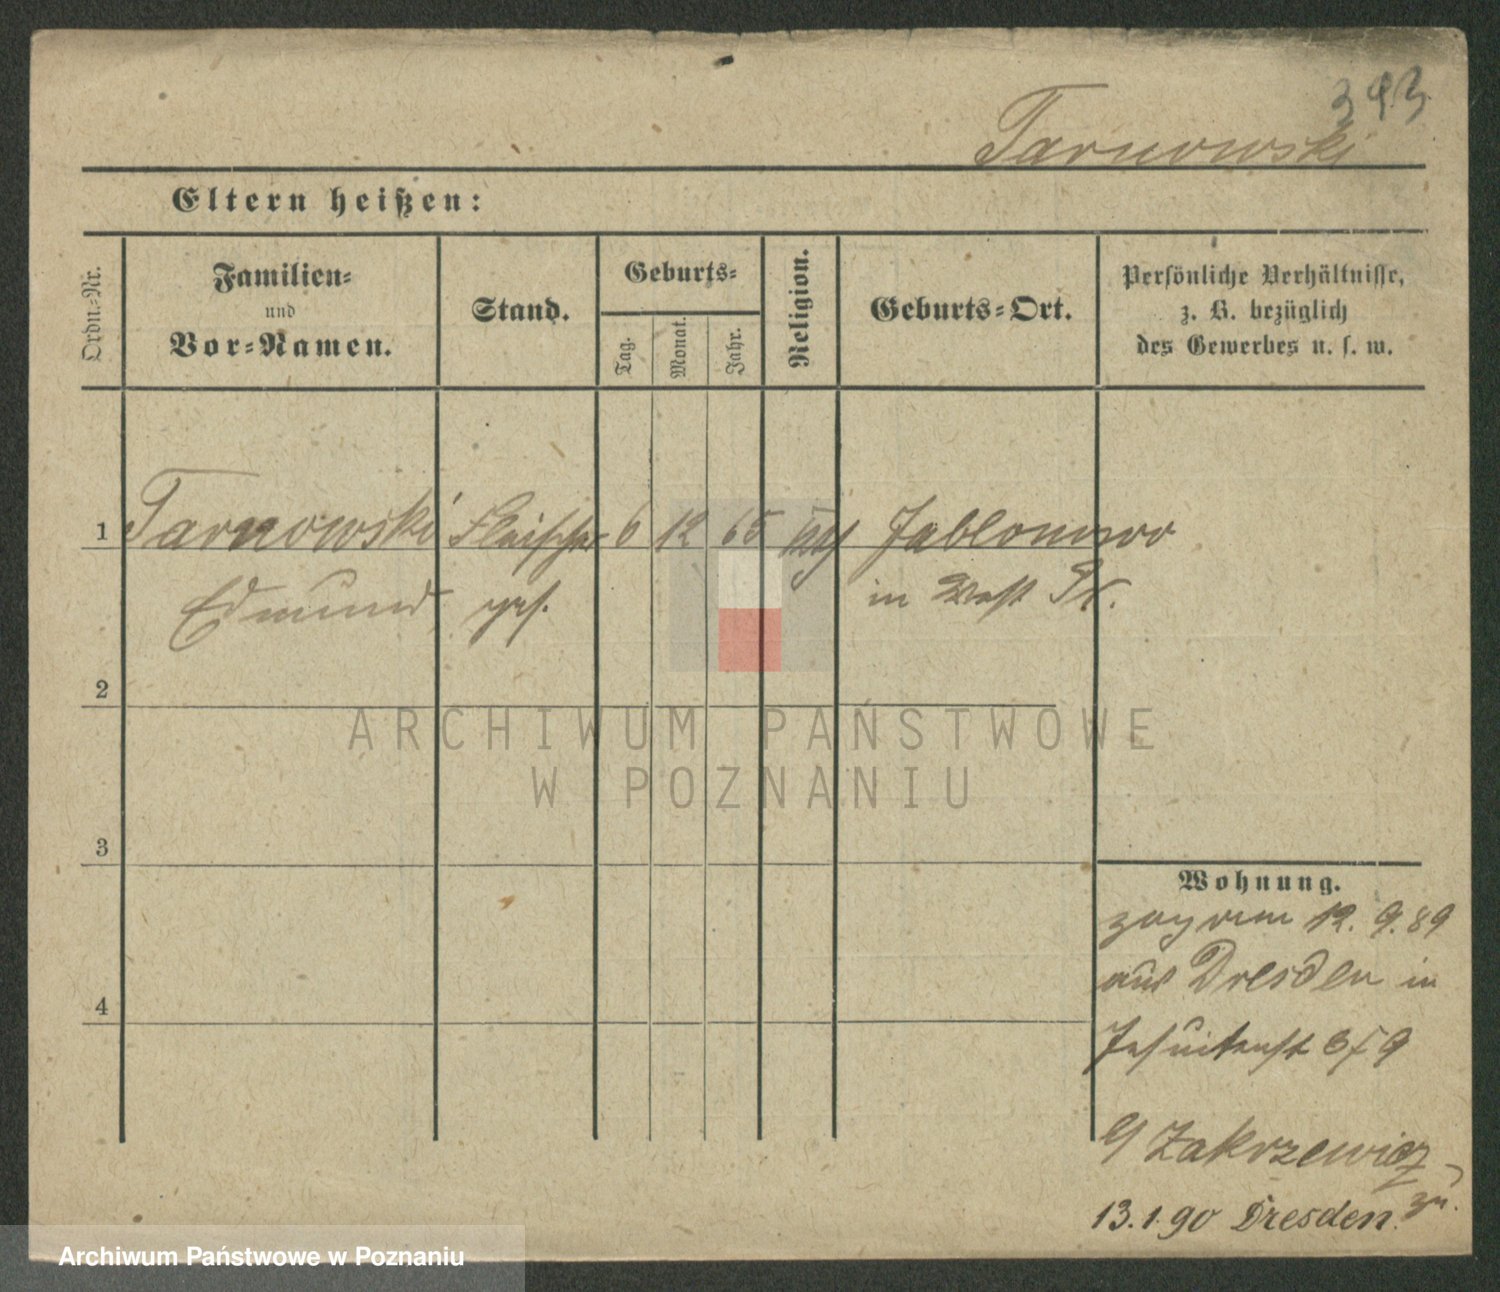 393
Tarnowski
Eltern heißen:
Ordn.=Nr.
Familien=
und
Vor=Namen.
Stand.
Geburts=
Tag.
Monat.
Jahr.
Religion.
Geburts=Ort.
Persönliche Verhältnisse,
z. B. bezüglich
des Gewerbes u. s. w.
1 Tarnowski Fleischer 6 12 65 Jablonowo
Edmund ges. in West Pr.
2
ARCHIWUM PAŃSTWOWE
W POZNANIU
3
Wohnung.
12. 9. 89
aus Dresden in
Jesuitenst
4
b/ Zakrzewicz
13.1.90 Dresden.
Archiwum Państwowe w Poznaniu